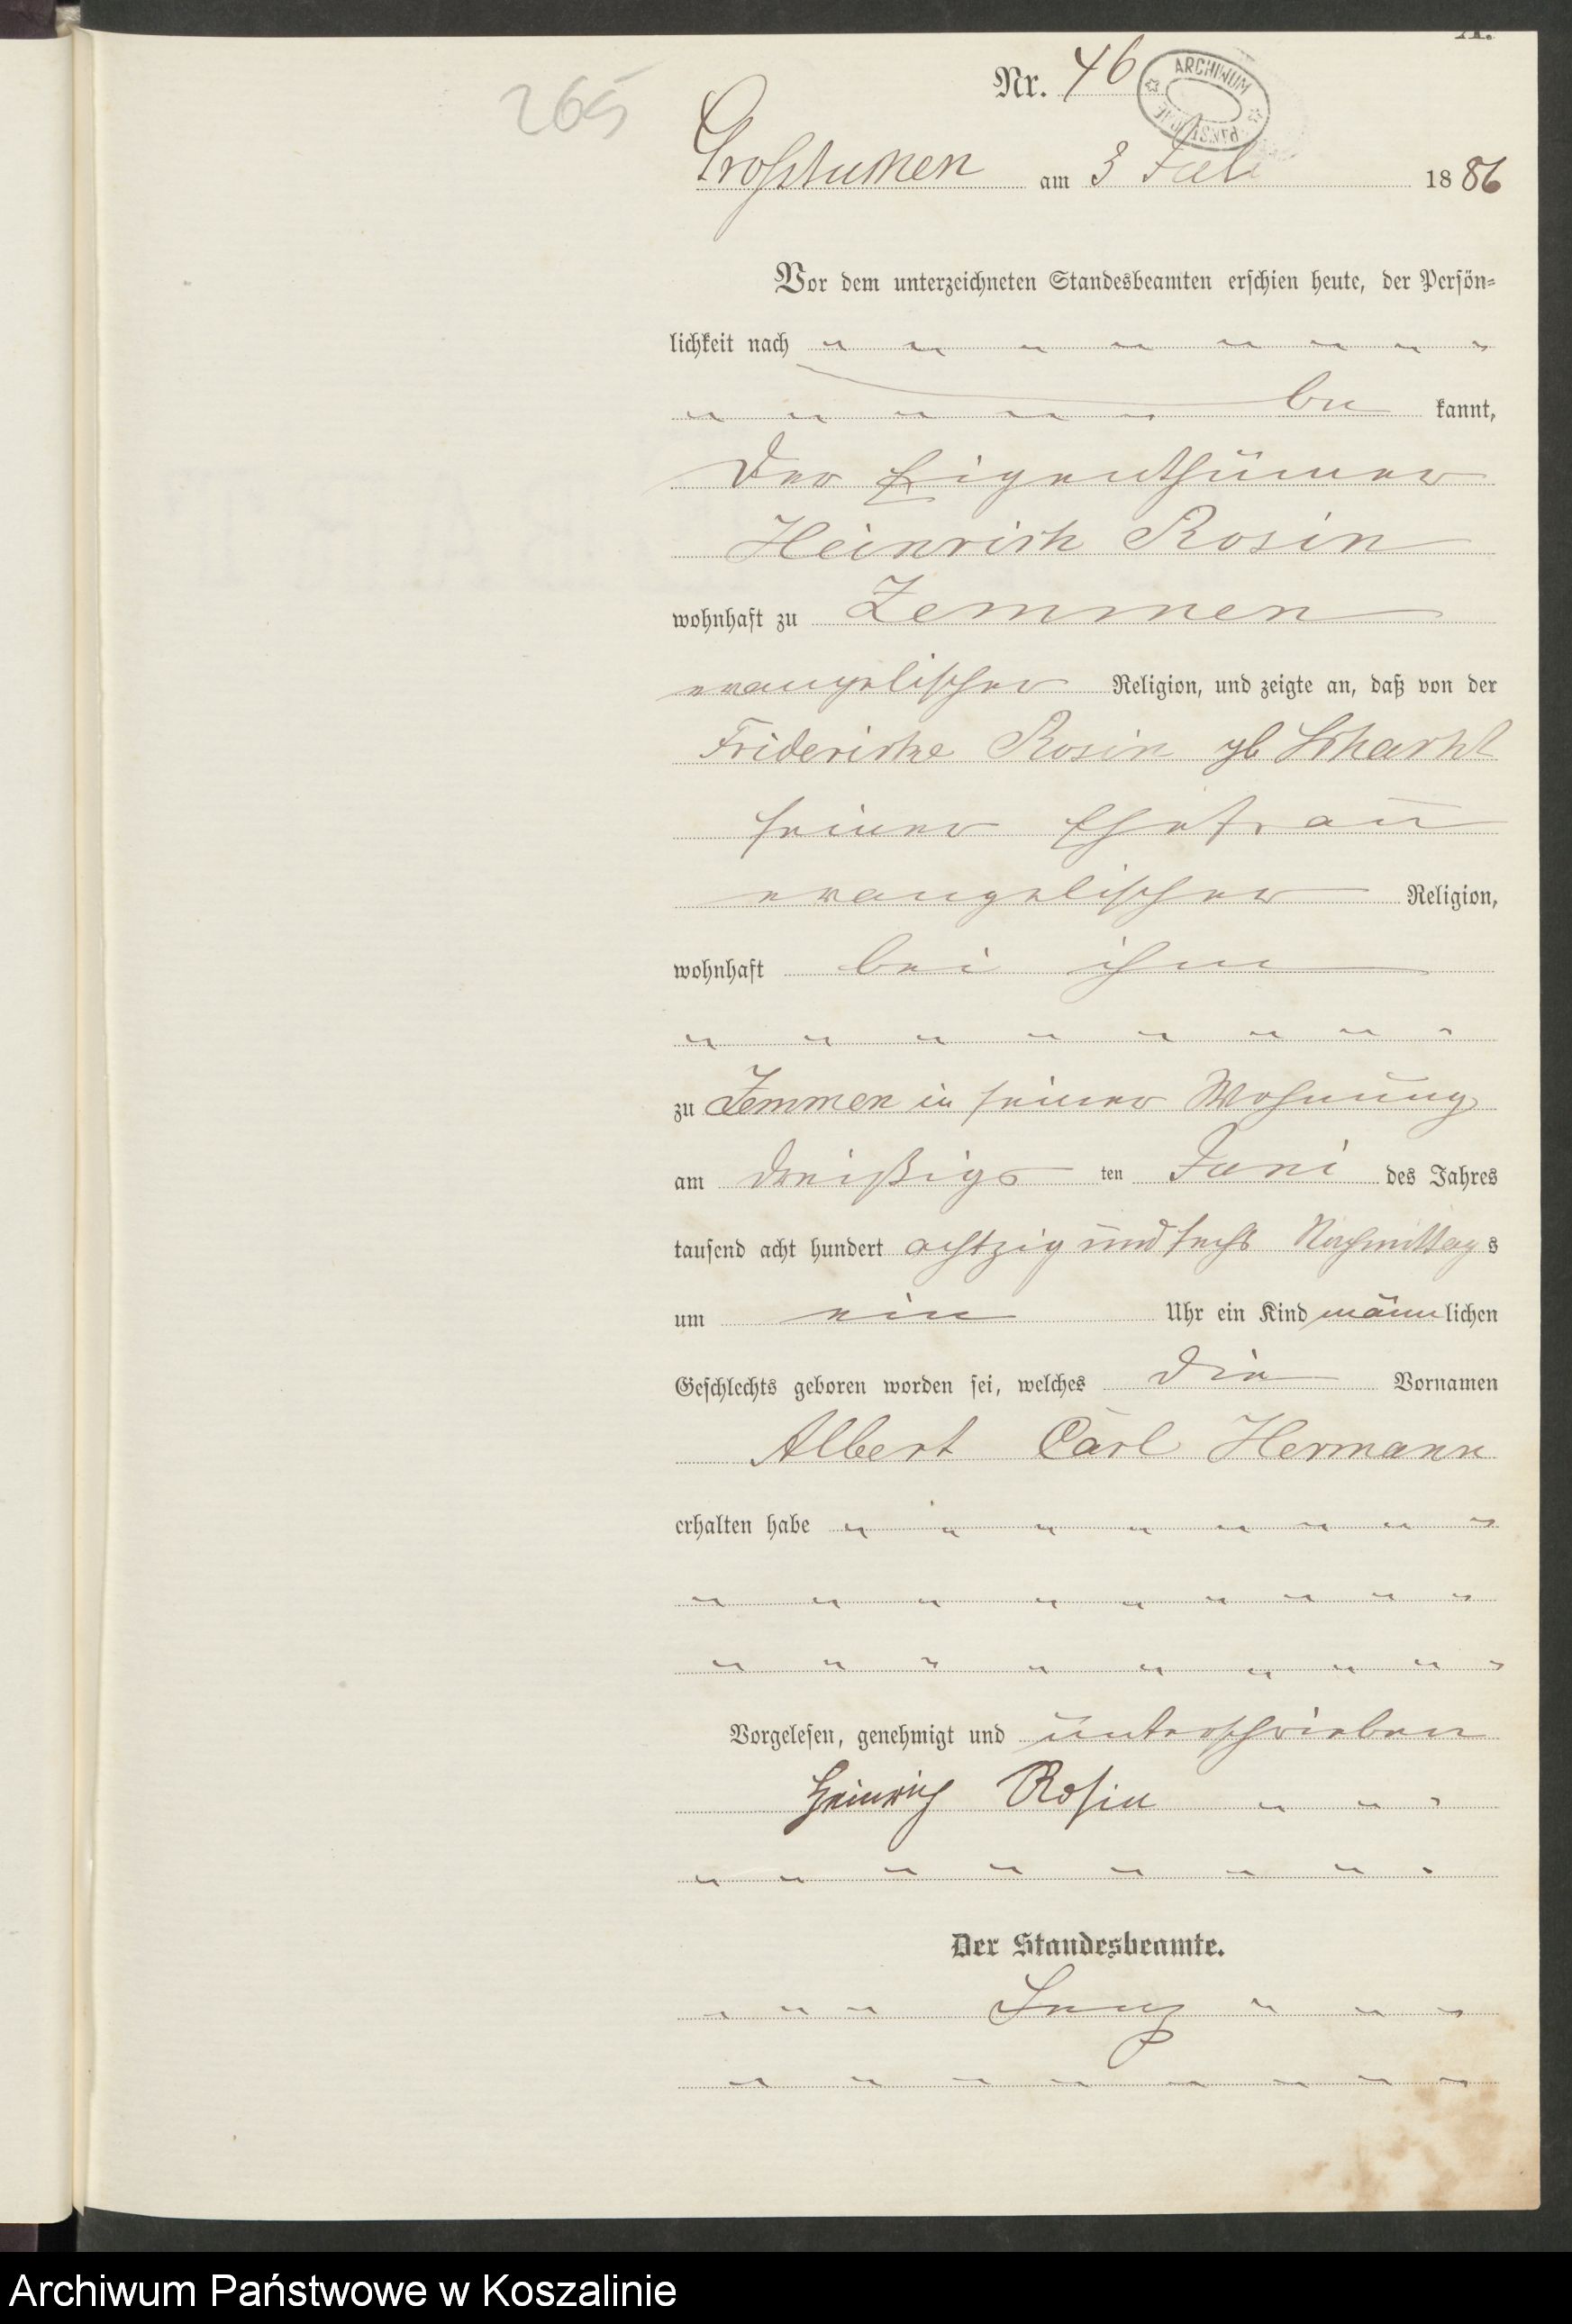 A.
265
Nr. 46
ARCHIWUM
Großtuchen am 3 Juli 1886
Vor dem unterzeichneten Standesbeamten erschien heute, der Persön-
lichkeit nach
be kannt,
der Eigenthümer
Heinrich Rosin
wohnhaft zu Zemmen
evangelischer Religion, und zeigte an, daß von der
Fridericke Rosin gb
seiner Ehefrau
evangelischer Religion,
wohnhaft bei ihm
zu Zemmen in seiner Wohnung
am dreißigs ten Juni des Jahres
tausend acht hundert achtzig und sechs Nachmittags
um ein Uhr ein Kind männlichen
Geschlechts geboren worden sei, welches die Vornamen
Albert Carl Hermann
erhalten habe
Vorgelesen, genehmigt und unterschrieben
Heinrich Rosin
Der Standesbeamte.
Archiwum Państwowe w Koszalinie